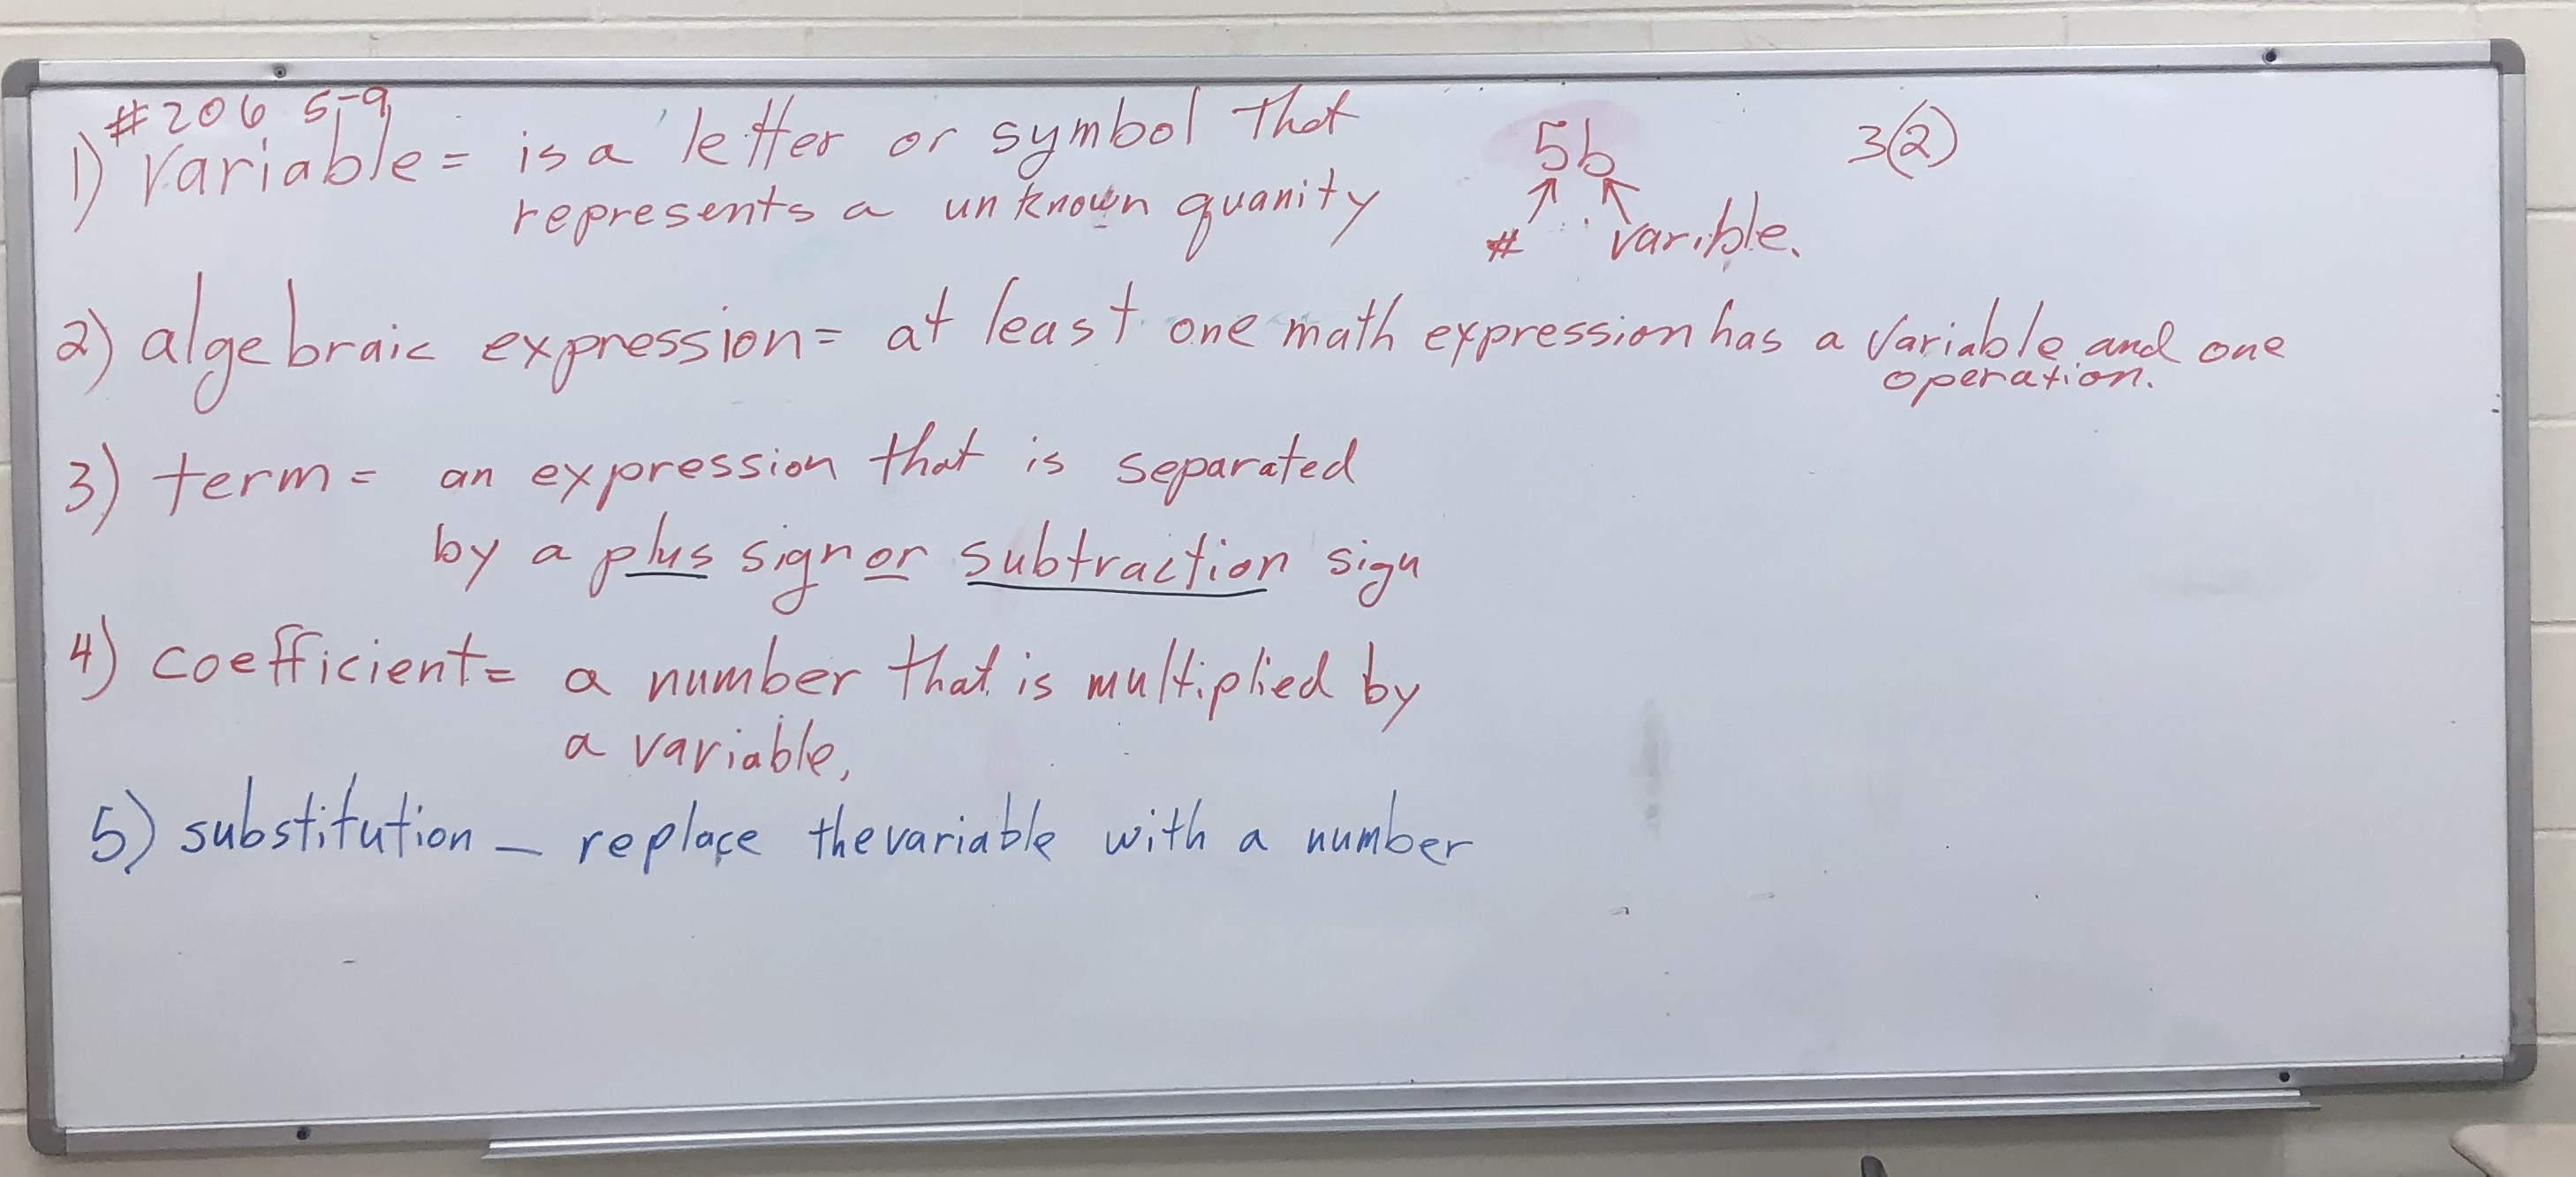 #206 5-9
1) Variable = is a letter or symbol that
represents a unknown quanity
5b
# varible.
3(2)
2) algebraic expression = at least one math expression has a variable and one
operation.
3) term = an expression that is separated
by a plus sign or subtraction sign
4) coefficient = a number that is multiplied by
a variable,
5) substitution – replace the variable with a number